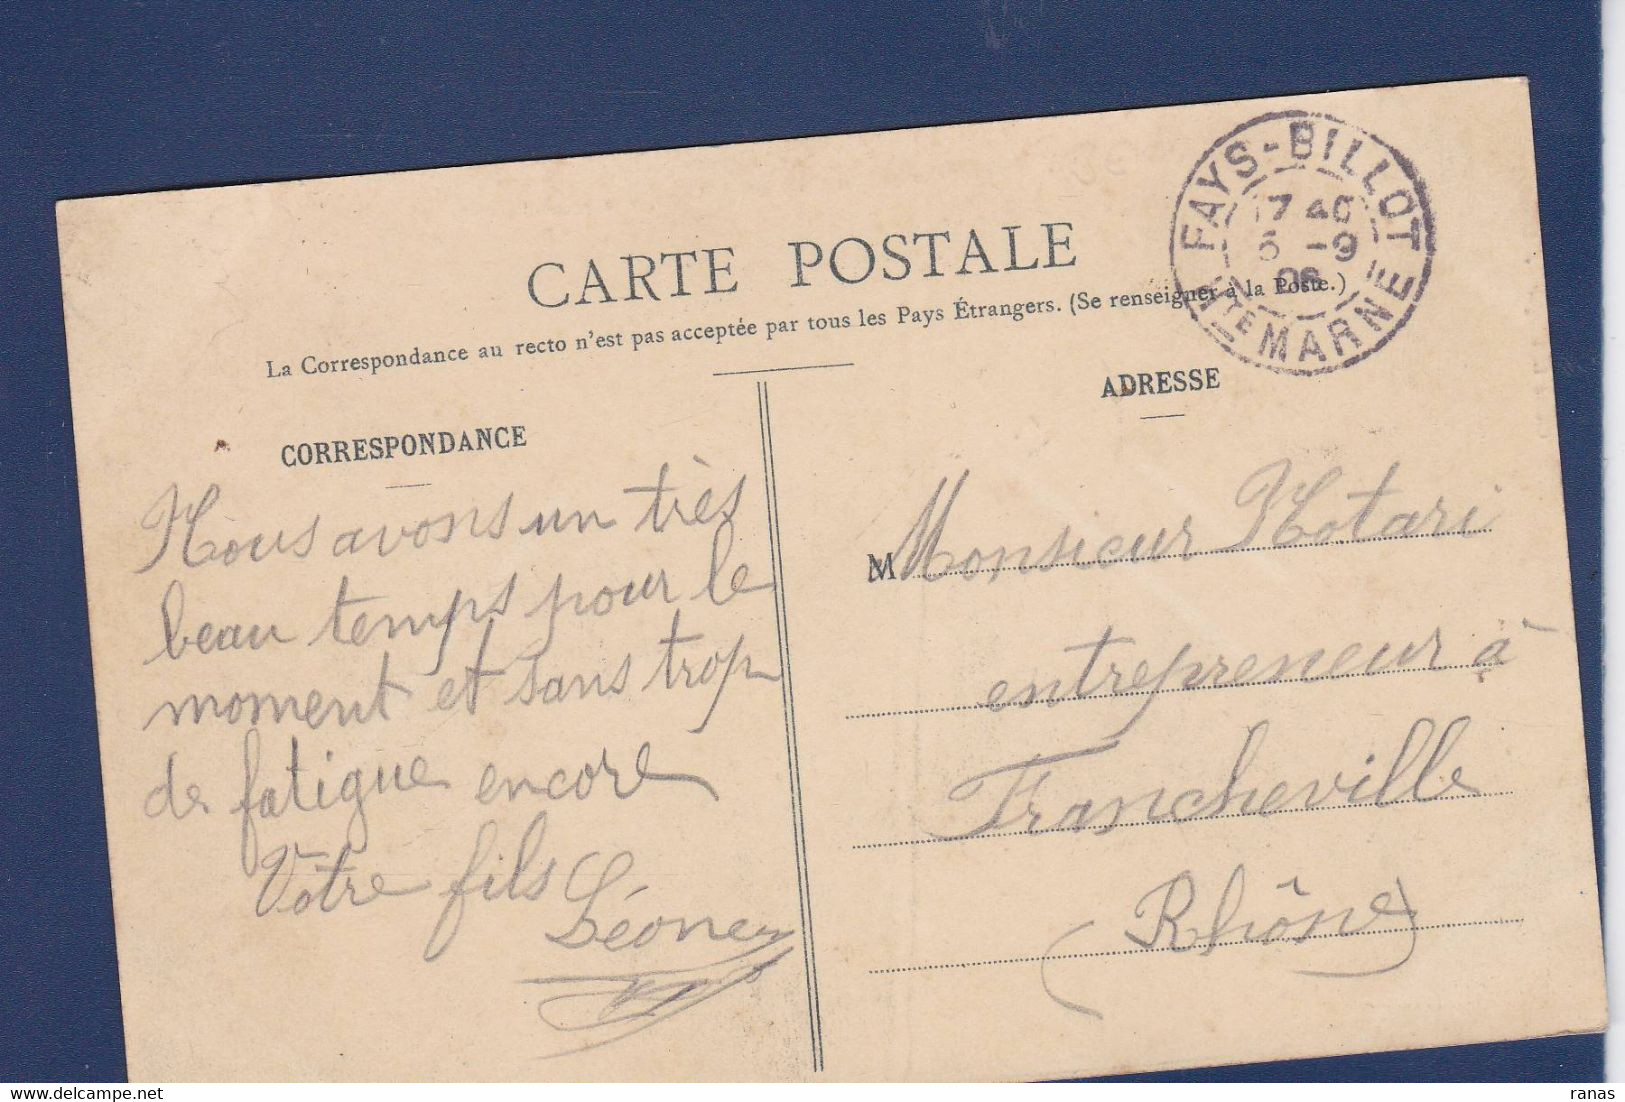 CARTE POSTALE
La Correspondance au recto n'est pas acceptée par tous les Pays Étrangers. (Se renseigner à la Poste.)
FAYS-BILLOT
17 40
5 -9
06
HTE MARNE
CORRESPONDANCE
Nous avons un très
beau temps pour le
moment et sans trop
de fatigue encore
Votre fils
ADRESSE
M Monsieur Notari
entrepreneur à
Francheville
(Rhône)
ranas